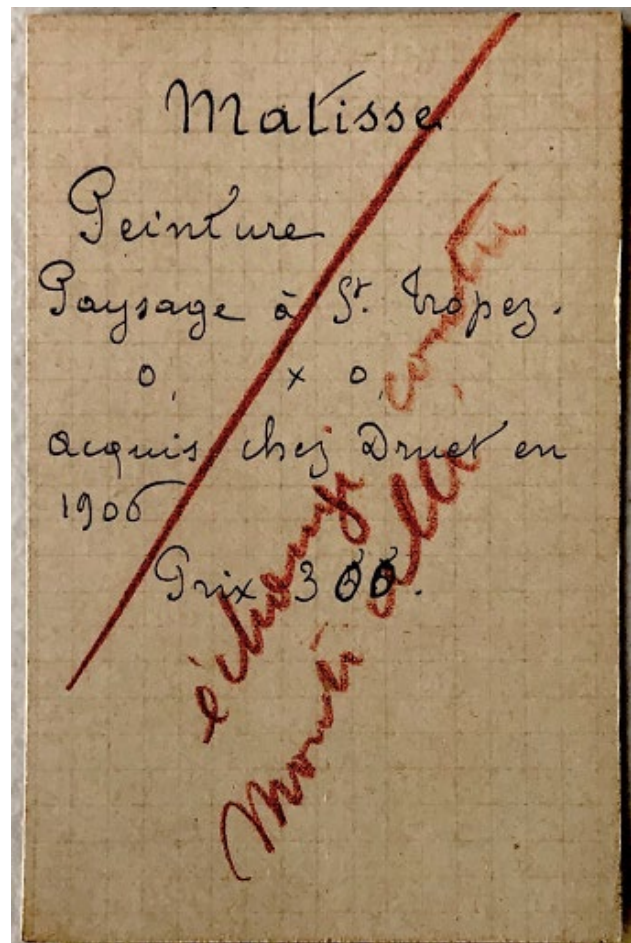 Matisse
Peinture
Paysage à St. Tropez.
0, x 0,
acquis chez Druet en
1906
Prix 300.
échangé contre
allé